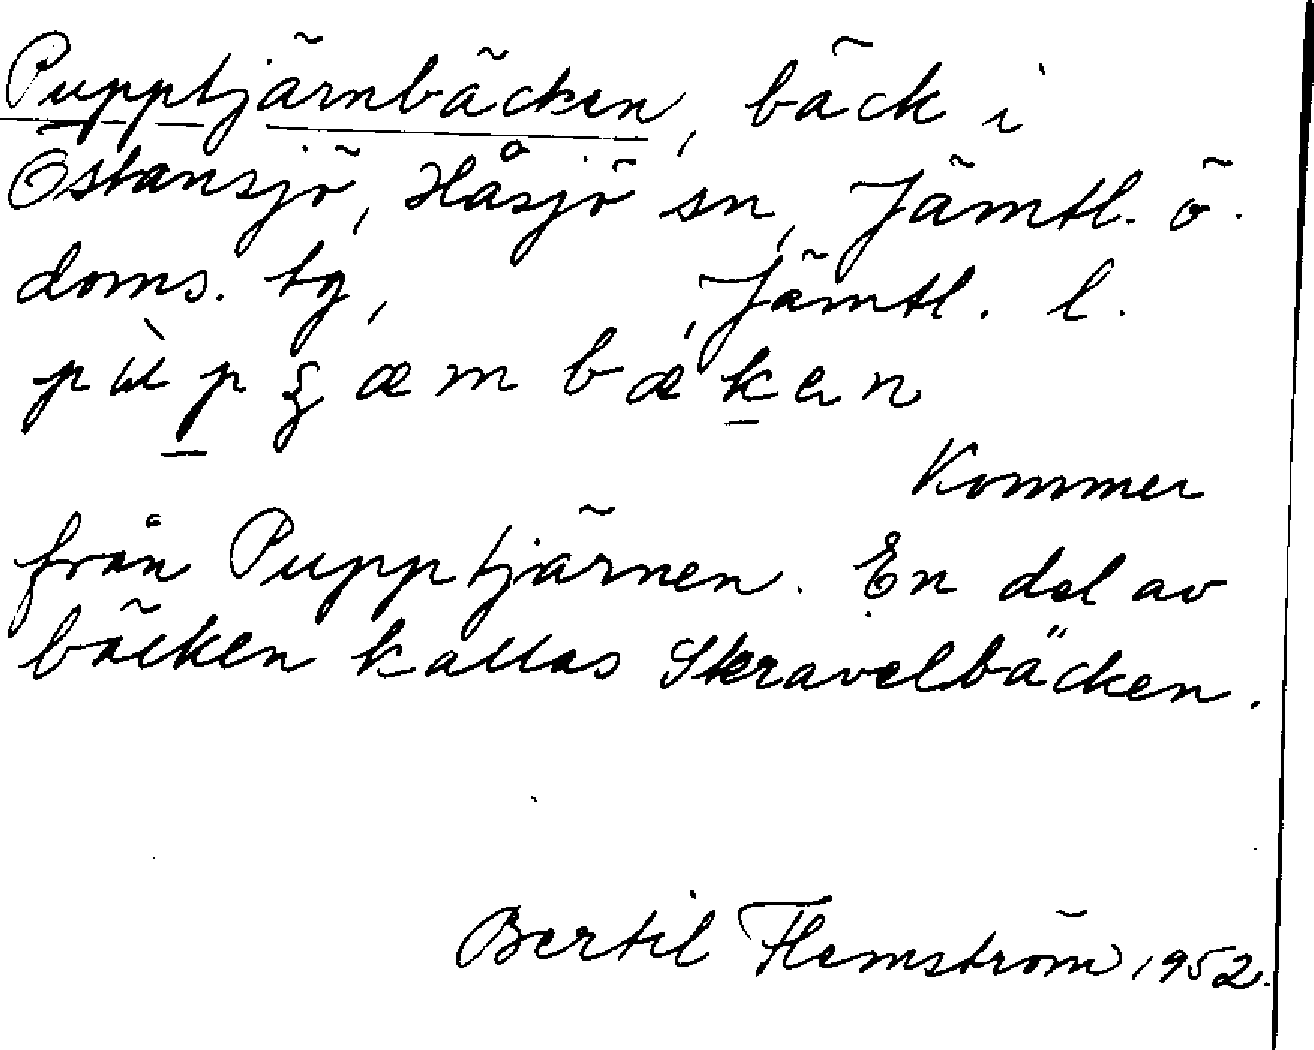 Pupptjärnbäcken, bäck i
Östansjö, Håsjö sn, Jämtl. ö.
doms. tg, , Jämtl. l.
Kommer
från Pupptjärnen. En del av
bäcken kallas Skravelbäcken.
Bertil Flemström 1952.